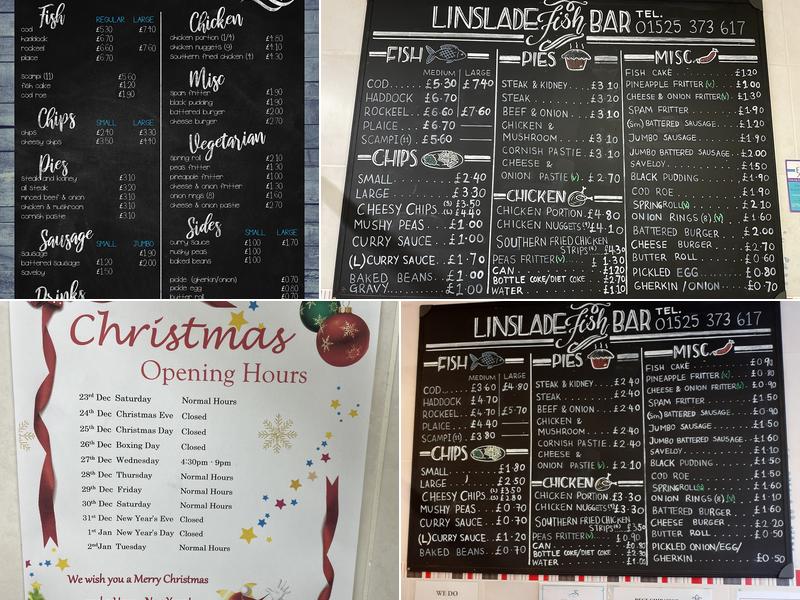 Fish REGULAR LARGE
cod £5.30 £7.40
haddock £6.70
rockeel £6.60 £7.60
place £6.70
scampi (11) £5.60
fish cake £1.20
cod roe £1.90
Chips SMALL LARGE
chips £2.40 £3.30
cheesy chips £3.50 £4.40
Pies
steak and kidney £3.10
all steak £3.20
minced beef & onion £3.10
chicken & mushroom £3.10
cornish pastie £3.10
Sausage SMALL JUMBO
sausage £1.90
battered sausage £1.20 £2.00
saveloy £1.50
Drinks
Chicken
chicken portion (1/4) £4.80
chicken nuggets (9) £4.10
southern fried chicken (4) £4.30
Misc
spam fritter £1.90
black pudding £1.90
battered burger £2.00
cheese burger £2.70
Vegetarian
spring roll £2.10
peas fritter £1.30
pineapple fritter £1.00
cheese & onion fritter £1.30
onion rings (8) £1.60
cheese & onion pastie £2.70
Sides SMALL LARGE
curry sauce £1.00 £1.70
mushy peas £1.00
baked beans £1.00
pickle (gherkin/onion) £0.70
pickle egg £0.80
butter roll £0.70
LINSLADE Fish BAR TEL. 01525 373 617
FISH
MEDIUM LARGE
COD.... £5.30 £7.40
HADDOCK £6.70
ROCKEEL.. £6.60 £7.60
PLAICE.... £6.70
SCAMPI(11) £5.60
CHIPS
SMALL...... £2.40
LARGE...... £3.30
CHEESY CHIPS (S) £3.50 (L) £4.40
MUSHY PEAS... £1.00
CURRY SAUCE... £1.00
(L)CURRY SAUCE.. £1.70
BAKED BEANS... £1.00
GRAVY...... £1.00
PIES
STEAK & KIDNEY.. £3.10
STEAK...... £3.20
BEEF & ONION... £3.10
CHICKEN &
MUSHROOM.... £3.10
CORNISH PASTIE. £3.10
CHEESE &
ONION PASTIE(v). £2.70
CHICKEN
CHICKEN PORTION. £4.80
CHICKEN NUGGETS(9) £4.10
SOUTHERN FRIED CHICKEN
STRIPS(4) £4.30
PEAS FRITTER(v) £1.30
CAN...... £1.20
BOTTLE COKE/DIET COKE £2.70
WATER..... £1.10
MISC.
FISH CAKE..... £1.20
PINEAPPLE FRITTER(v).. £1.00
CHEESE & ONION FRITTER(v). £1.30
SPAM FRITTER..... £1.90
(Sm) BATTERED SAUSAGE. £1.20
JUMBO SAUSAGE.... £1.90
JUMBO BATTERED SAUSAGE... £2.00
SAVELOY...... £1.50
BLACK PUDDING.... £1.90
COD ROE...... £1.90
SPRINGROLL(v).... £2.10
ONION RINGS (8)(v).. £1.60
BATTERED BURGER... £2.00
CHEESE BURGER.... £2.70
BUTTER ROLL..... £0.60
PICKLED EGG..... £0.80
GHERKIN / ONION... £0.70
Christmas
Opening Hours
23rd Dec Saturday Normal Hours
24th Dec Christmas Eve Closed
25th Dec Christmas Day Closed
26th Dec Boxing Day Closed
27th Dec Wednesday 4:30pm - 9pm
28th Dec Thursday Normal Hours
29th Dec Friday Normal Hours
30th Dec Saturday Normal Hours
31st Dec New Year's Eve Closed
1st Jan New Year's Day Closed
2nd Jan Tuesday Normal Hours
We wish you a Merry Christmas
LINSLADE Fish BAR TEL. 01525 373 617
FISH
MEDIUM LARGE
COD.... £3.60 £4.80
HADDOCK £4.70
ROCKEEL.. £4.70 £5.70
PLAICE.... £4.40
SCAMPI(11) £3.80
CHIPS
SMALL...... £1.80
LARGE...... £2.50
CHEESY CHIPS (S) £3.50 (L) £2.80
MUSHY PEAS... £0.70
CURRY SAUCE... £0.70
(L)CURRY SAUCE.. £1.20
BAKED BEANS... £0.70
PIES
STEAK & KIDNEY.. £2.40
STEAK...... £2.40
BEEF & ONION... £2.40
CHICKEN &
MUSHROOM.... £2.40
CORNISH PASTIE. £2.40
CHEESE &
ONION PASTIE(v). £2.10
CHICKEN
CHICKEN PORTION. £3.30
CHICKEN NUGGETS £3.30
SOUTHERN FRIED CHICKEN
STRIPS(4) £3.50
PEAS FRITTER(v) £0.90
CAN...... £0.80
BOTTLE COKE/DIET COKE
WATER..... £1.00
MISC.
FISH CAKE..... £0.90
PINEAPPLE FRITTER(v)..
CHEESE & ONION FRITTER(v). £0.90
SPAM FRITTER..... £1.50
(Sm) BATTERED SAUSAGE. £0.90
JUMBO SAUSAGE.... £1.50
JUMBO BATTERED SAUSAGE... £1.60
SAVELOY...... £1.10
BLACK PUDDING.... £1.50
COD ROE...... £1.50
SPRINGROLL(v).... £1.60
ONION RINGS (8)(v).. £1.10
BATTERED BURGER... £1.60
CHEESE BURGER.... £2.20
BUTTER ROLL..... £0.50
PICKLED ONION/EGG/
GHERKIN...... £0.50
WE DO